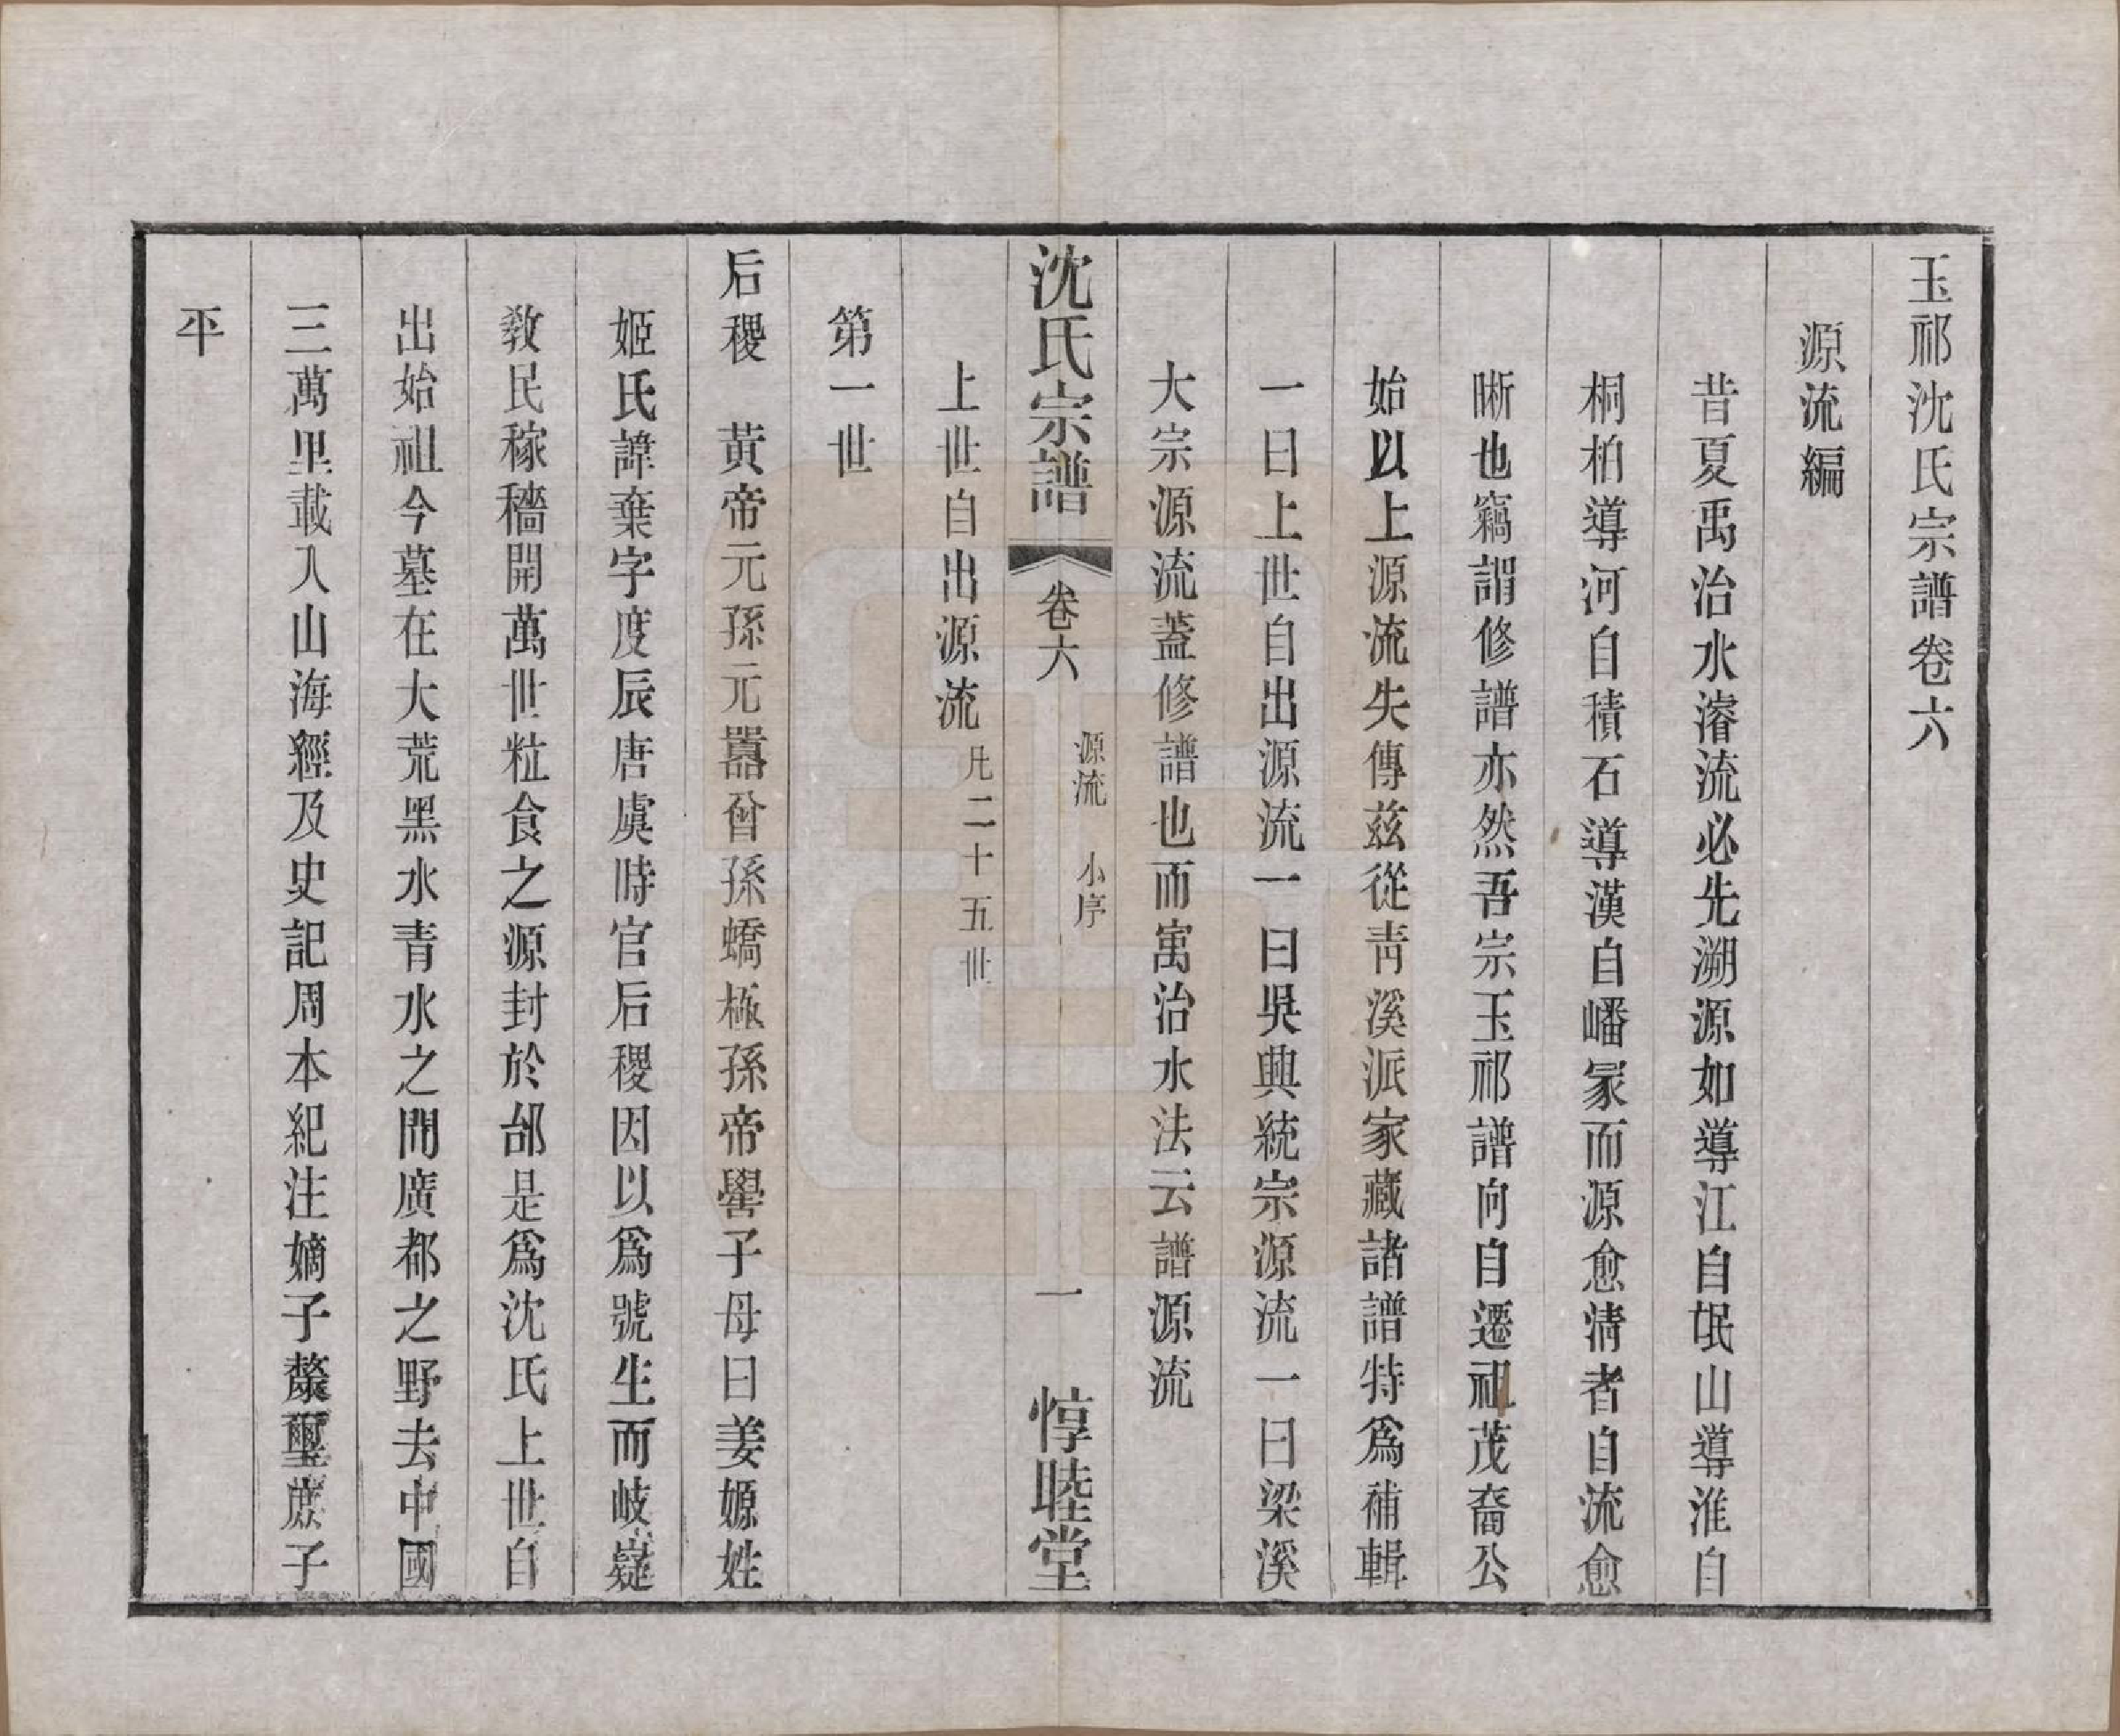 玉祁沈氏宗譜卷六
源流編
昔夏禹治水濬流必先溯源如導江自岷山導淮自
桐柏導河自積石導漢自嶓冢而源愈淸者自流愈
晰也竊謂修譜亦然吾宗玉祁譜向自遷祖茂裔公
始以上源流失傳茲從靑溪派家藏諸譜特爲補輯
一曰上世自出源流一曰吳興統宗源流一曰梁溪
大宗源流蓋修譜也而寓治水法云譜源流
沈氏宗譜 卷六 源流 小序 一 惇睦堂
上世自出源流凡二十五世
第一世
后稷 黃帝元孫元囂曾孫蟜極孫帝嚳子母曰姜嫄姓
姬氏諱棄字度辰唐虞時官后稷因以爲號生而岐嶷
敎民稼穡開萬世粒食之源封於邰是爲沈氏上世自
出始祖今墓在大荒黑水青水之間廣都之野去中國
三萬里載入山海經及史記周本紀注嫡子漦璽庶子
平